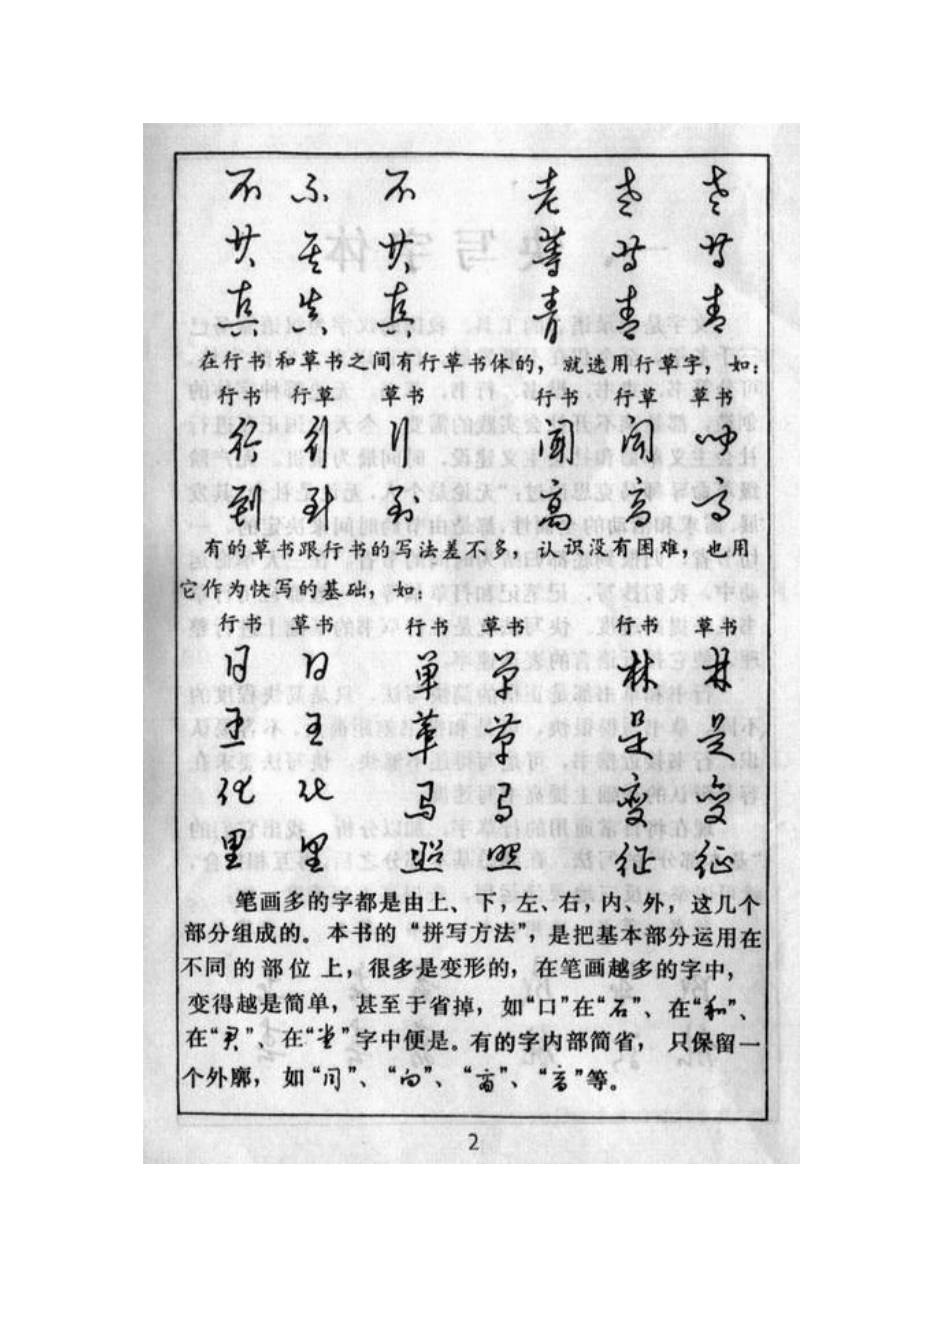 不 不 不 老 老 老
共 共 共 等 等 等
真 真 真 青 青 青
在行书和草书之间有行草书体的，就选用行草字，如：
行书 行草 草书 行书 行草 草书
行 行 行 闻 闻 闻
到 到 到 高 高 高
有的草书跟行书的写法差不多，认识没有困难，也用
它作为快写的基础，如：
行书 草书 行书 草书 行书 草书
日 日 单 单 林 林
王 王 革 草 是 是
化 化 马 马 变 变
里 里 照 照 征 征
笔画多的字都是由上、下，左、右，内、外，这几个
部分组成的。本书的“拼写方法”，是把基本部分运用在
不同的部位上，很多是变形的，在笔画越多的字中，
变得越是简单，甚至于省掉，如“口”在“石”、在“和”、
在“君”、在“堂”字中便是。有的字内部简省，只保留一
个外廓，如“问”、“向”、“”、“”等。
2